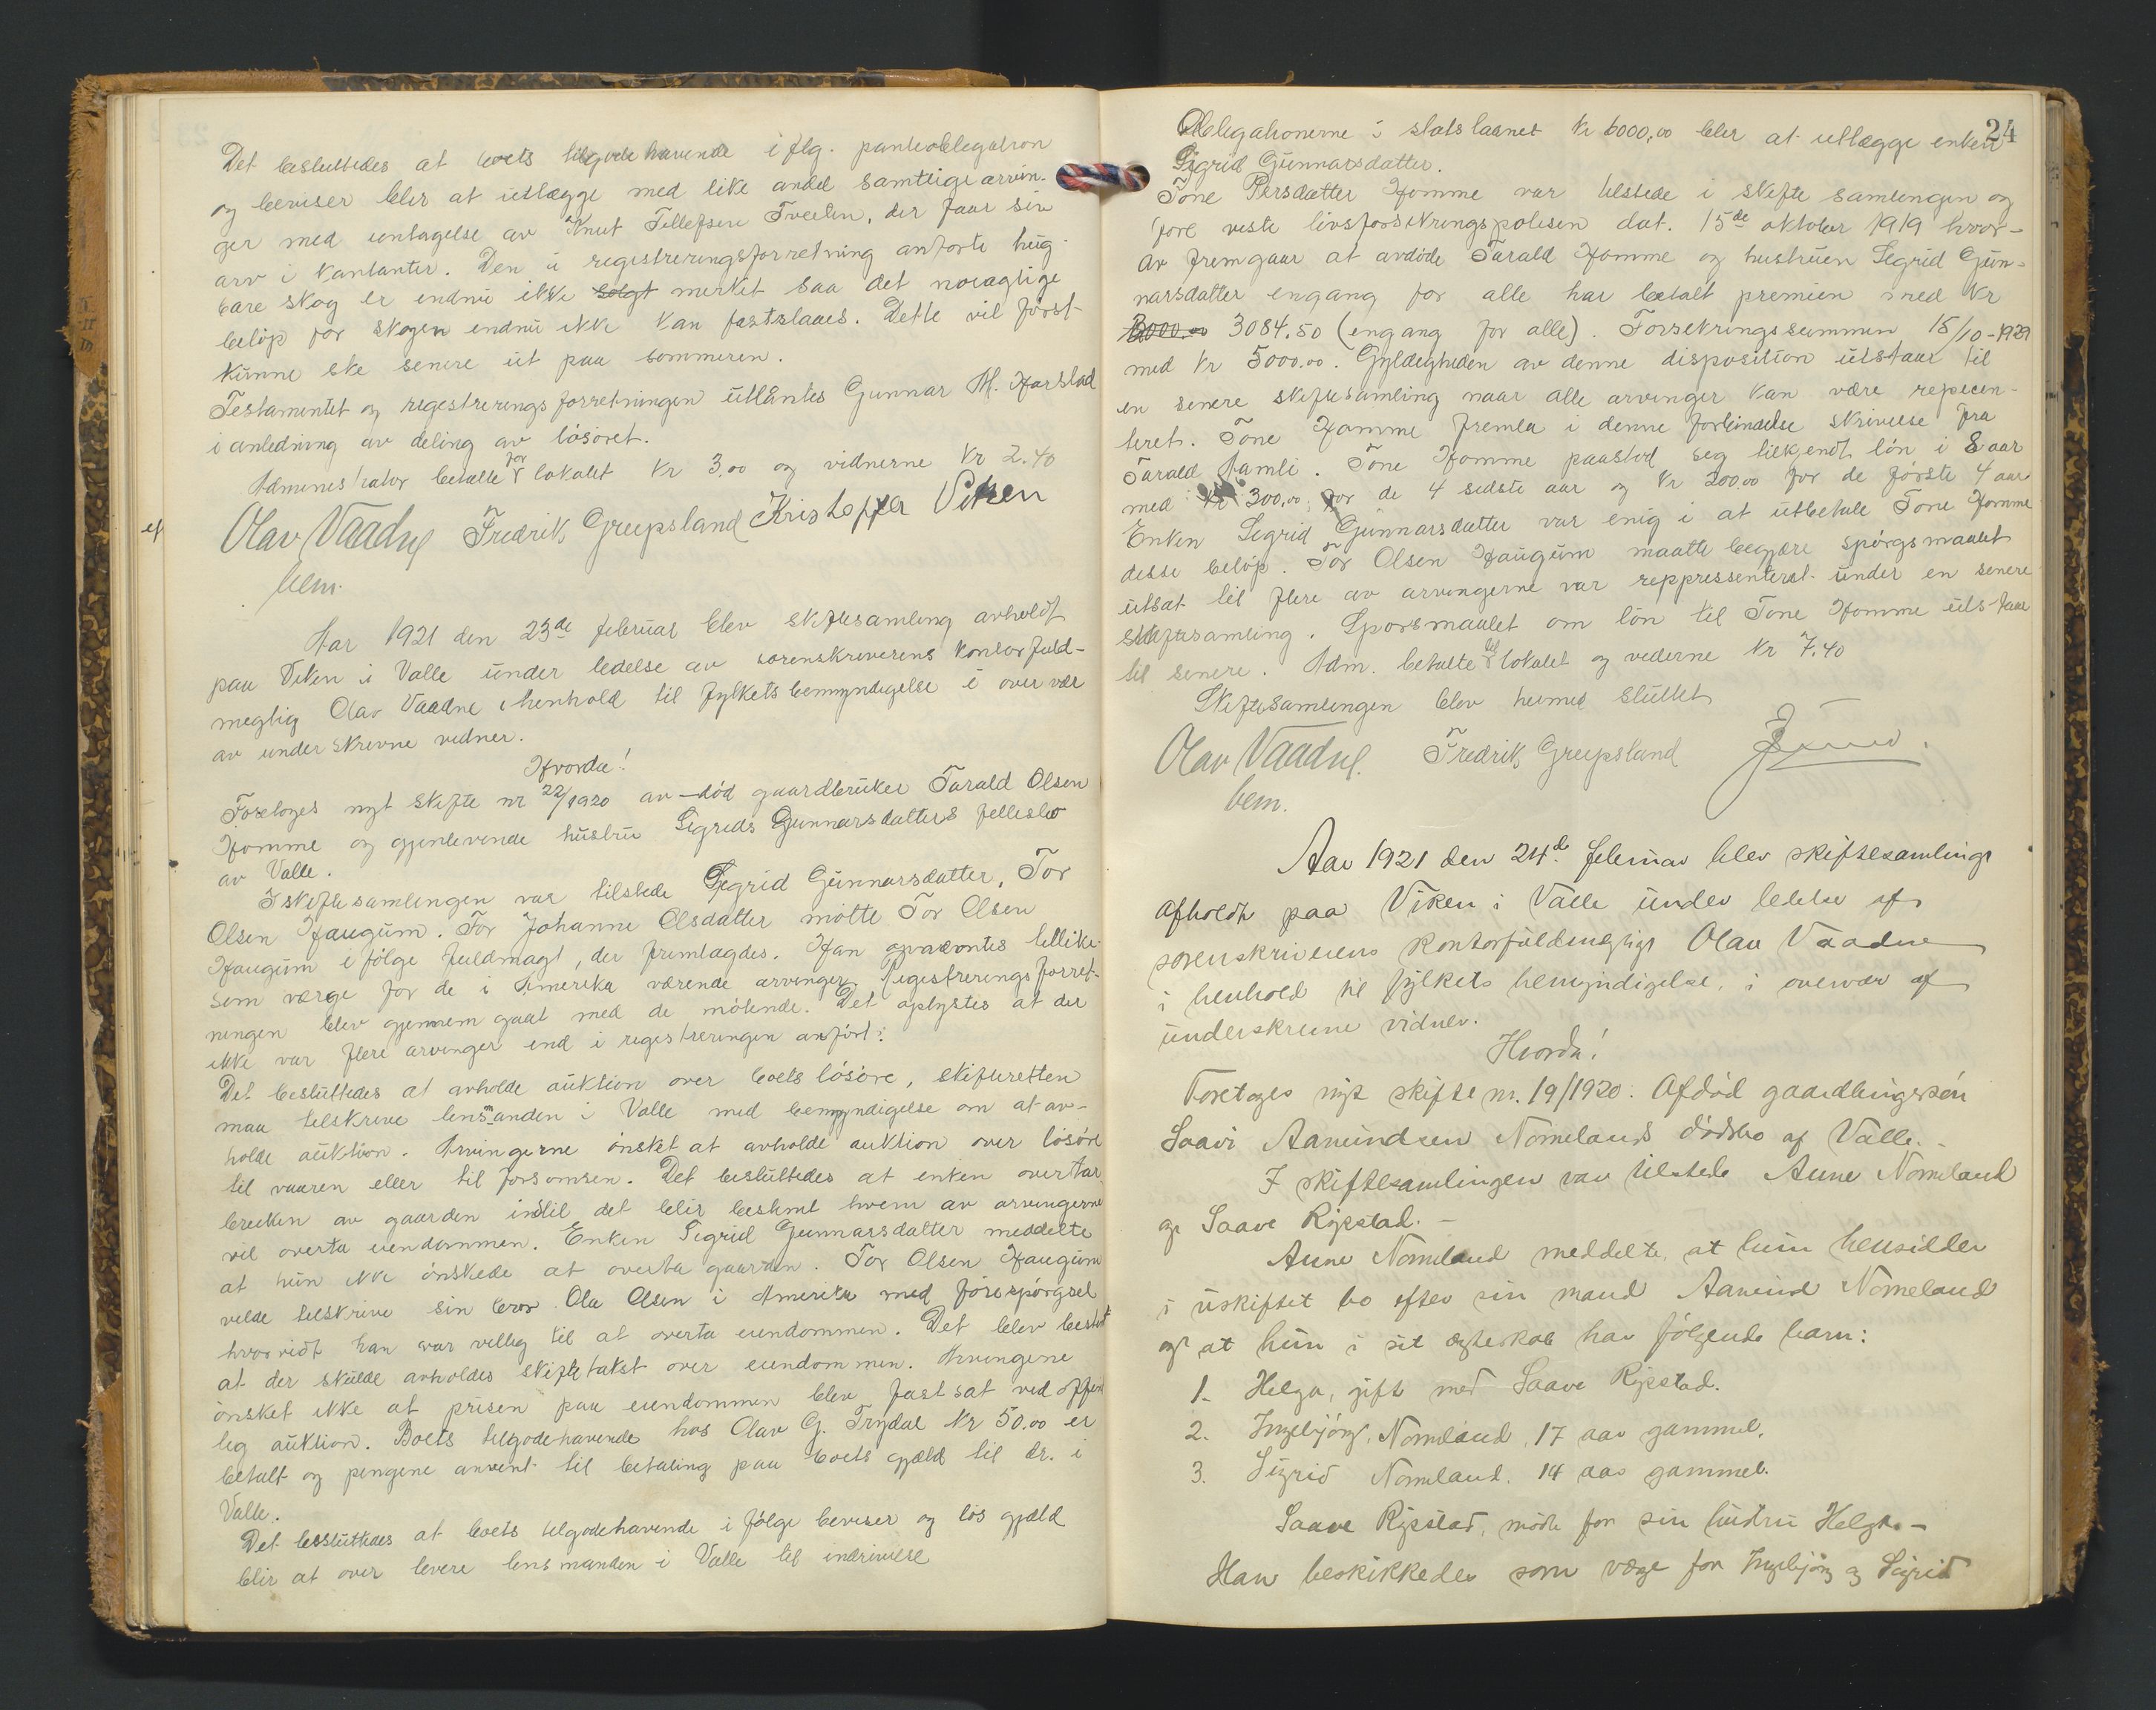 Det besluttedes at boets tilgodehavende iflg. panteobligation
og beviser blir at utlægge med like andel samtlige arvin-
ger med undtagelse av Knut Tellefsen Tveiten, der faar sin
arv i kontanter. Den i registreringsforretning anførte hug-
bare skog er endnu ikke solgt merket saa det nøiagtige
beløp for skogen endnu ikke kan fastslaaes. Dette vil først
kunne ske senere ut paa sommeren.
Testamentet og registreringsforretningen utlåntes Gunnar M. Harstad
i anledning av deling av løsøret.
Administrator betalte for lokalet kr 3.00 og vidnerne kr 2.40
Olav Vaadne Fredrik Greipsland Kristoffer Viken
bem.
ef
Aar 1921 den 23de februar blev skiftesamling avholdt
paa Viken i Valle under ledelse av sorenskriverens kontorfuld-
megtig Olav Vaadne i henhold til fylkets bemyndigelse i overvær
av underskrevne vidner.
Hvorda!
Foretoges nyt skifte nr 22/1920 av død gaardbruker Tarald Olsen
Homme og gjenlevende hustru Sigrids Gunnarsdatters fellesbo
av Valle.
I skiftesamlingen var tilstede Sigrid Gunnarsdatter, Tor
Olsen Haugum. For Johanne Olsdatter møtte Tor Olsen
Haugum ifølge fuldmagt, der fremlagdes. Han opnævntes tillike
som værge for de i Amerika værende arvinger. Registreringsforret-
ningen blev gjennemgaat med de møtende. Det oplystes at der
ikke var flere arvinger end i registreringen anført:
Det besluttedes at avholde auktion over boets løsøre, skifteretten
maa tilskrive lensmanden i Valle med bemyndigelse om at av-
holde auktion. Arvingerne ønsket at avholde auktion over løsøre
til vaaren eller til forsomren. Det besluttedes at enken overtar
bruken av gaarden indtil det blir bestemt hvem av arvingerne
vil overta eiendommen. Enken Sigrid Gunnarsdatter meddelte
at hun ikke ønskede at overta gaarden. Tor Olsen Haugum
vilde tilskrive sin bror Ole Olsen i Amerika med forespørgsel
hvorvidt han var villig til at overta eiendommen. Det blev bestemt
at der skulde avholdes skiftetakst over eiendommen. Arvingene
ønsket ikke at prisen paa eiendommen blev fastsat ved offent
lig auktion. Boets tilgodehavende hos Olav G. Trydal kr 50.00 er
betalt og pengene anvent til betaling paa boets gjæld til dr. i
Valle.
Det besluttedes at boets tilgodehavende ifølge beviser og løs gjæld
blir at overlevere lensmanden i Valle til indrivelse
24
Obligationerne i statslaanet kr 6000,00 blir at utlægge enken
Sigrid Gunnarsdatter.
Tone Persdatter Homme var tilstede i skiftesamlingen og
foreviste livsforsikringspolisen dat. 15de oktober 1919 hvor-
av fremgaar at avdøde Tarald Homme og hustruen Sigrid Gun-
narsdatter engang for alle har betalt premien med kr
3000.00 3084.50 (engang for alle). Forsikringssummen 15/10-1929
med kr 5000.00. Gyldigheden av denne disposition utstaar til
en senere skiftesamling naar alle arvinger kan være repecen-
teret. Tone Homme fremla i denne forbindelse skrivelse fra
Tarald Hamli. Tone Homme paastod seg tilkjendt løn i 8 aar
med kr 300,00 for de 4 sidste aar og kr 200.00 for de første 4 aar
Enken Sigrid Gunnarsdatter var enig i at utbetale Tone Homme
disse beløp. Tor Olsen Haugum maatte begjære spørgsmaalet
utsat til flere av arvingerne var reppressenteret under en senere
skiftesamling. Sporsmaalet om løn til Tone Homme utstaar
til senere. Adm. betalte til lokalet og viderne kr 7.40
Skiftesamlingen blev hermed sluttet
Olav Vaadne. Fredrik Greipsland
bem.
Aar 1921 den 24de februar blev skiftesamling
afholdt paa Viken i Valle under ledelse af
sorenskriverens kontorfuldmegtig Olav Vaadne
i henhold til fylkets bemyndigelse, i overvær af
underskrevne vidner.
Hvorda!
Foretoges nyt skifte nr. 19/1920. Afdød gaardbrugersøn
Saavi Aamundsen Nomelands dødsbo af Valle.
I skiftesamlingen var tilstede Anne Nomeland
og Saave Rysstad.
Anne Nomeland meddelte, at hun hensidder
i uskiftet bo efter sin mand Aamund Nomeland
og at hun i sit ægteskab har følgende barn:
1. Helga, gift med Saave Rysstad.
2. Ingebjørg Nomeland, 17 aar gammel.
3. Sigrid Nomeland. 14 aar gammel.
Saave Rysstad, møtte for sin hustru Helga.
Han beskikkedes som værge for Ingebjørg og Sigrid